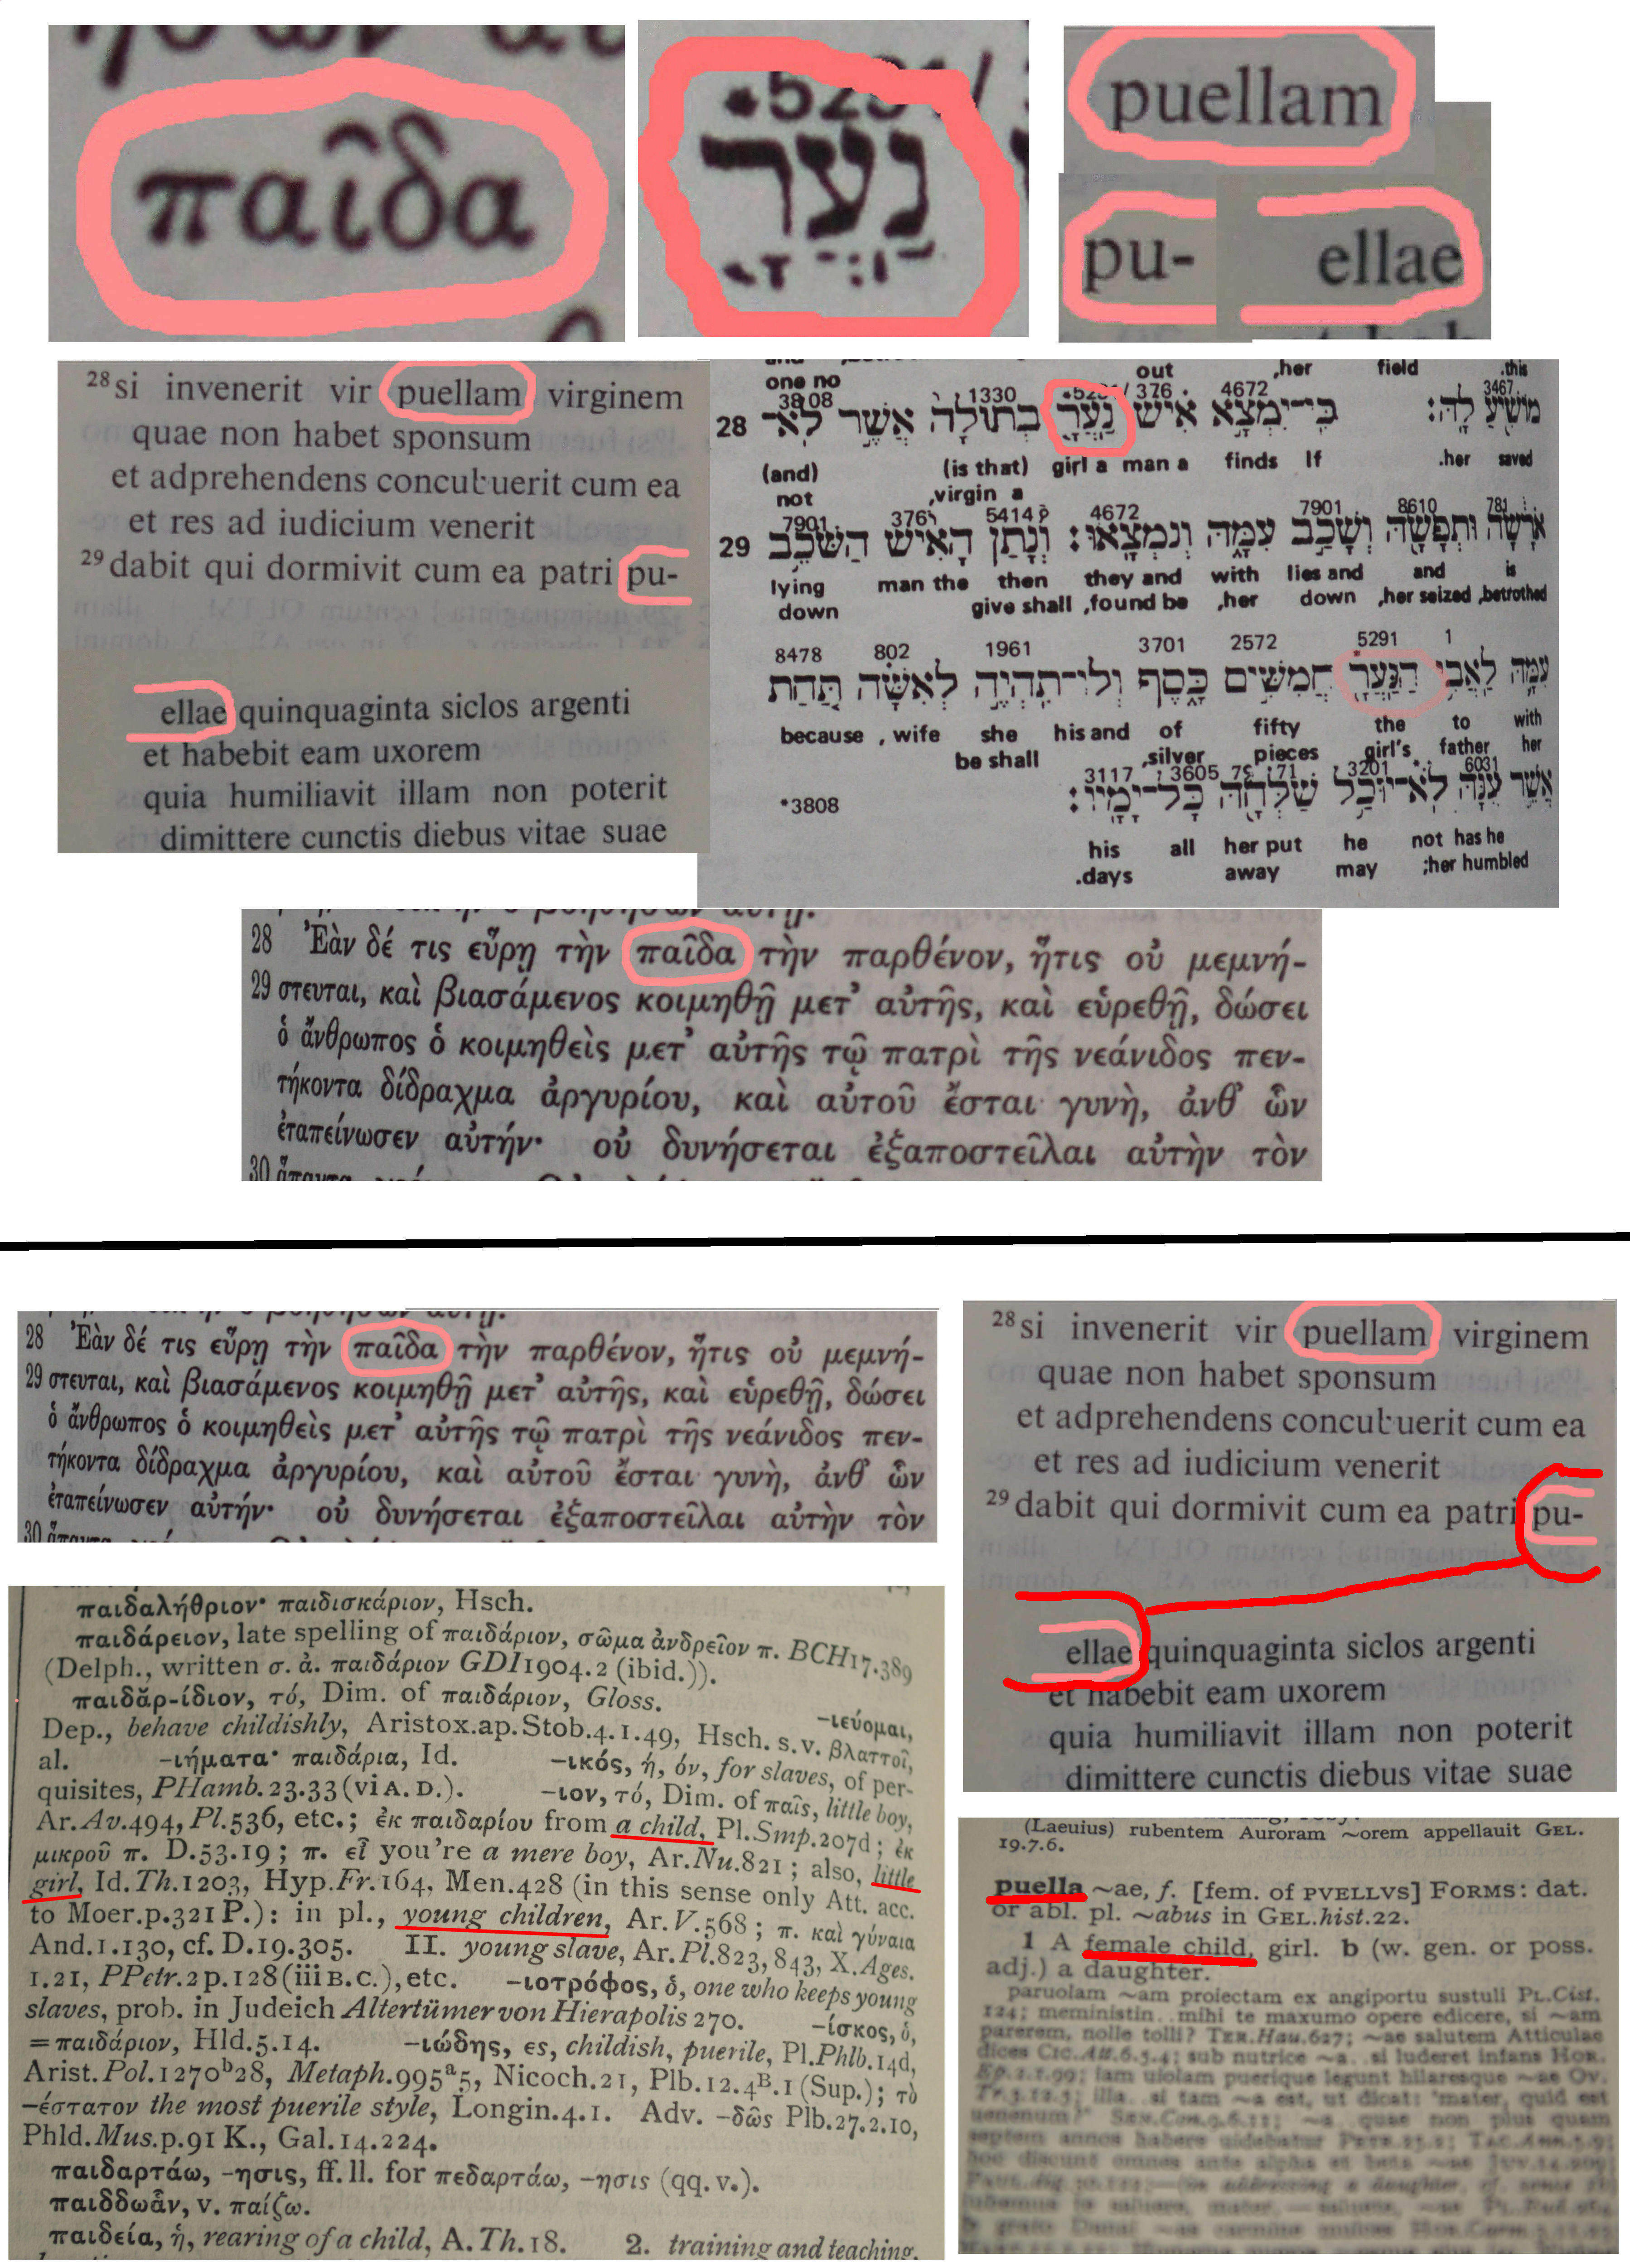 παῖδα
נַעֲרָ
puellam
pu-
ellae
28 si invenerit vir puellam virginem
quae non habet sponsum
et adprehendens concubuerit cum ea
et res ad iudicium venerit
29 dabit qui dormivit cum ea patri pu-
ellae quinquaginta siclos argenti
et habebit eam uxorem
quia humiliavit illam non poterit
dimittere cunctis diebus vitae suae
one no out ,her field .this
3808 1330 376 4672 3467
28 מוֹשִׁיעַ לָהּ: כִּי־יִמְצָא אִישׁ נַעֲרָ בְתוּלָה אֲשֶׁר לֹא־
(and) (is that) girl a man a finds If .her saved
not ,virgin a
7901 376 5414 4672 7901 8610 781
29 אֹרָשָׂה וּתְפָשָׂהּ וְשָׁכַב עִמָּהּ וְנִמְצָאוּ: וְנָתַן הָאִישׁ הַשֹּׁכֵב
lying man the then they and with lies and and is
down give shall ,found be ,her down ,her seized ,betrothed
8478 802 1961 3701 2572 5291 1
עִמָּהּ לַאֲבִי הַנַּעֲרָ חֲמִשִּׁים כָּסֶף וְלוֹ־תִהְיֶה לְאִשָּׁה תַּחַת
because , wife she his and of fifty the to with
be shall ,silver pieces girl's father her
3117 3605 71 3201 6031
*3808 אֲשֶׁר עִנָּהּ לֹא־יוּכַל שַׁלְּחָהּ כָּל־יָמָיו:
his all her put he not has he
.days away may ;her humbled
28 Ἐὰν δέ τις εὕρῃ τὴν παῖδα τὴν παρθένον, ἥτις οὐ μεμνή-
29 στευται, καὶ βιασάμενος κοιμηθῇ μετ’ αὐτῆς, καὶ εὑρεθῇ, δώσει
ὁ ἄνθρωπος ὁ κοιμηθεὶς μετ’ αὐτῆς τῷ πατρὶ τῆς νεάνιδος πεν-
τήκοντα δίδραχμα ἀργυρίου, καὶ αὐτοῦ ἔσται γυνὴ, ἀνθ’ ὧν
ἐταπείνωσεν αὐτήν· οὐ δυνήσεται ἐξαποστεῖλαι αὐτὴν τὸν
30
28 Ἐὰν δέ τις εὕρῃ τὴν παῖδα τὴν παρθένον, ἥτις οὐ μεμνή-
29 στευται, καὶ βιασάμενος κοιμηθῇ μετ’ αὐτῆς, καὶ εὑρεθῇ, δώσει
ὁ ἄνθρωπος ὁ κοιμηθεὶς μετ’ αὐτῆς τῷ πατρὶ τῆς νεάνιδος πεν-
τήκοντα δίδραχμα ἀργυρίου, καὶ αὐτοῦ ἔσται γυνὴ, ἀνθ’ ὧν
ἐταπείνωσεν αὐτήν· οὐ δυνήσεται ἐξαποστεῖλαι αὐτὴν τὸν
30
28 si invenerit vir puellam virginem
quae non habet sponsum
et adprehendens concubuerit cum ea
et res ad iudicium venerit
29 dabit qui dormivit cum ea patri pu-
ellae quinquaginta siclos argenti
et habebit eam uxorem
quia humiliavit illam non poterit
dimittere cunctis diebus vitae suae
παιδαλήθριον· παιδισκάριον, Hsch.
παιδάρειον, late spelling of παιδάριον, σῶμα ἀνδρεῖον π. BCH17.389
(Delph., written σ. ἀ. παιδάριον GDI1904.2 (ibid.)).
παιδᾰρ-ίδιον, τό, Dim. of παιδάριον, Gloss. -ιεύομαι,
Dep., behave childishly, Aristox.ap.Stob.4.1.49, Hsch. s.v. βλαττοῖ,
al. -ιήματα· παιδάρια, Id. -ικός, ή, όν, for slaves, of per-
quisites, PHamb.23.33 (vi A. D.). -ιον, τό, Dim. of παῖς, little boy,
Ar.Av.494, Pl.536, etc.; ἐκ παιδαρίου from a child, Pl.Smp.207d; ἐκ
μικροῦ π. D.53.19; π. εἶ you're a mere boy, Ar.Nu.821; also, little
girl, Id.Th.1203, Hyp.Fr.164, Men.428 (in this sense only Att. acc.
to Moer.p.321 P.): in pl., young children, Ar.V.568; π. καὶ γύναια
And.1.130, cf. D.19.305. II. young slave, Ar.Pl.823, 843, X.Ages.
1.21, PPetr.2 p.128 (iii B.C.), etc. -ιοτρόφος, ὁ, one who keeps young
slaves, prob. in Judeich Altertümer von Hierapolis 270. -ίσκος, ὁ,
= παιδάριον, Hld.5.14. -ιώδης, ες, childish, puerile, Pl.Phlb.14d,
Arist.Pol.1270b28, Metaph.995a5, Nicoch.21, Plb.12.4B.1 (Sup.); τὸ
-έστατον the most puerile style, Longin.4.1. Adv. -δῶς Plb.27.2.10,
Phld.Mus.p.91 K., Gal.14.224.
παιδαρτάω, -ησις, ff. ll. for πεδαρτάω, -ησις (qq. v.).
παιδδωἆν, v. παίζω.
παιδεία, ἡ, rearing of a child, A.Th.18. 2. training and teaching,
(Laeuius) rubentem Auroram ~orem appellauit GEL.
19.7.6.
puella ~ae, f. [fem. of PVELLVS] FORMS: dat.
or abl. pl. ~abus in GEL.hist.22.
1 A female child, girl. b (w. gen. or poss.
adj.) a daughter.
paruolam ~am proiectam ex angiportu sustuli PL.Cist.
124; meministin.. mihi te maxumo opere edicere, si ~am
parerem, nolle tolli? TER.Hau.627; ~ae salutem Atticulae
dices CIC.Att.6.5.4; sub nutrice ~a.. si luderet infans HOR.